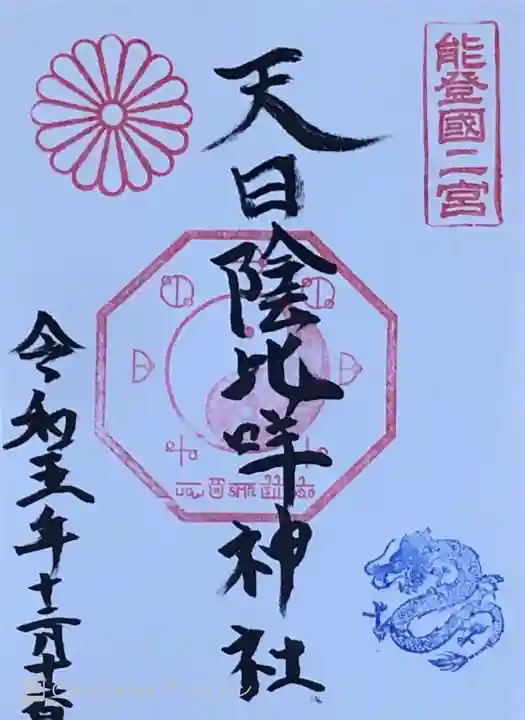 能登國二宮
天日陰比咩神社
令和五年十二月十